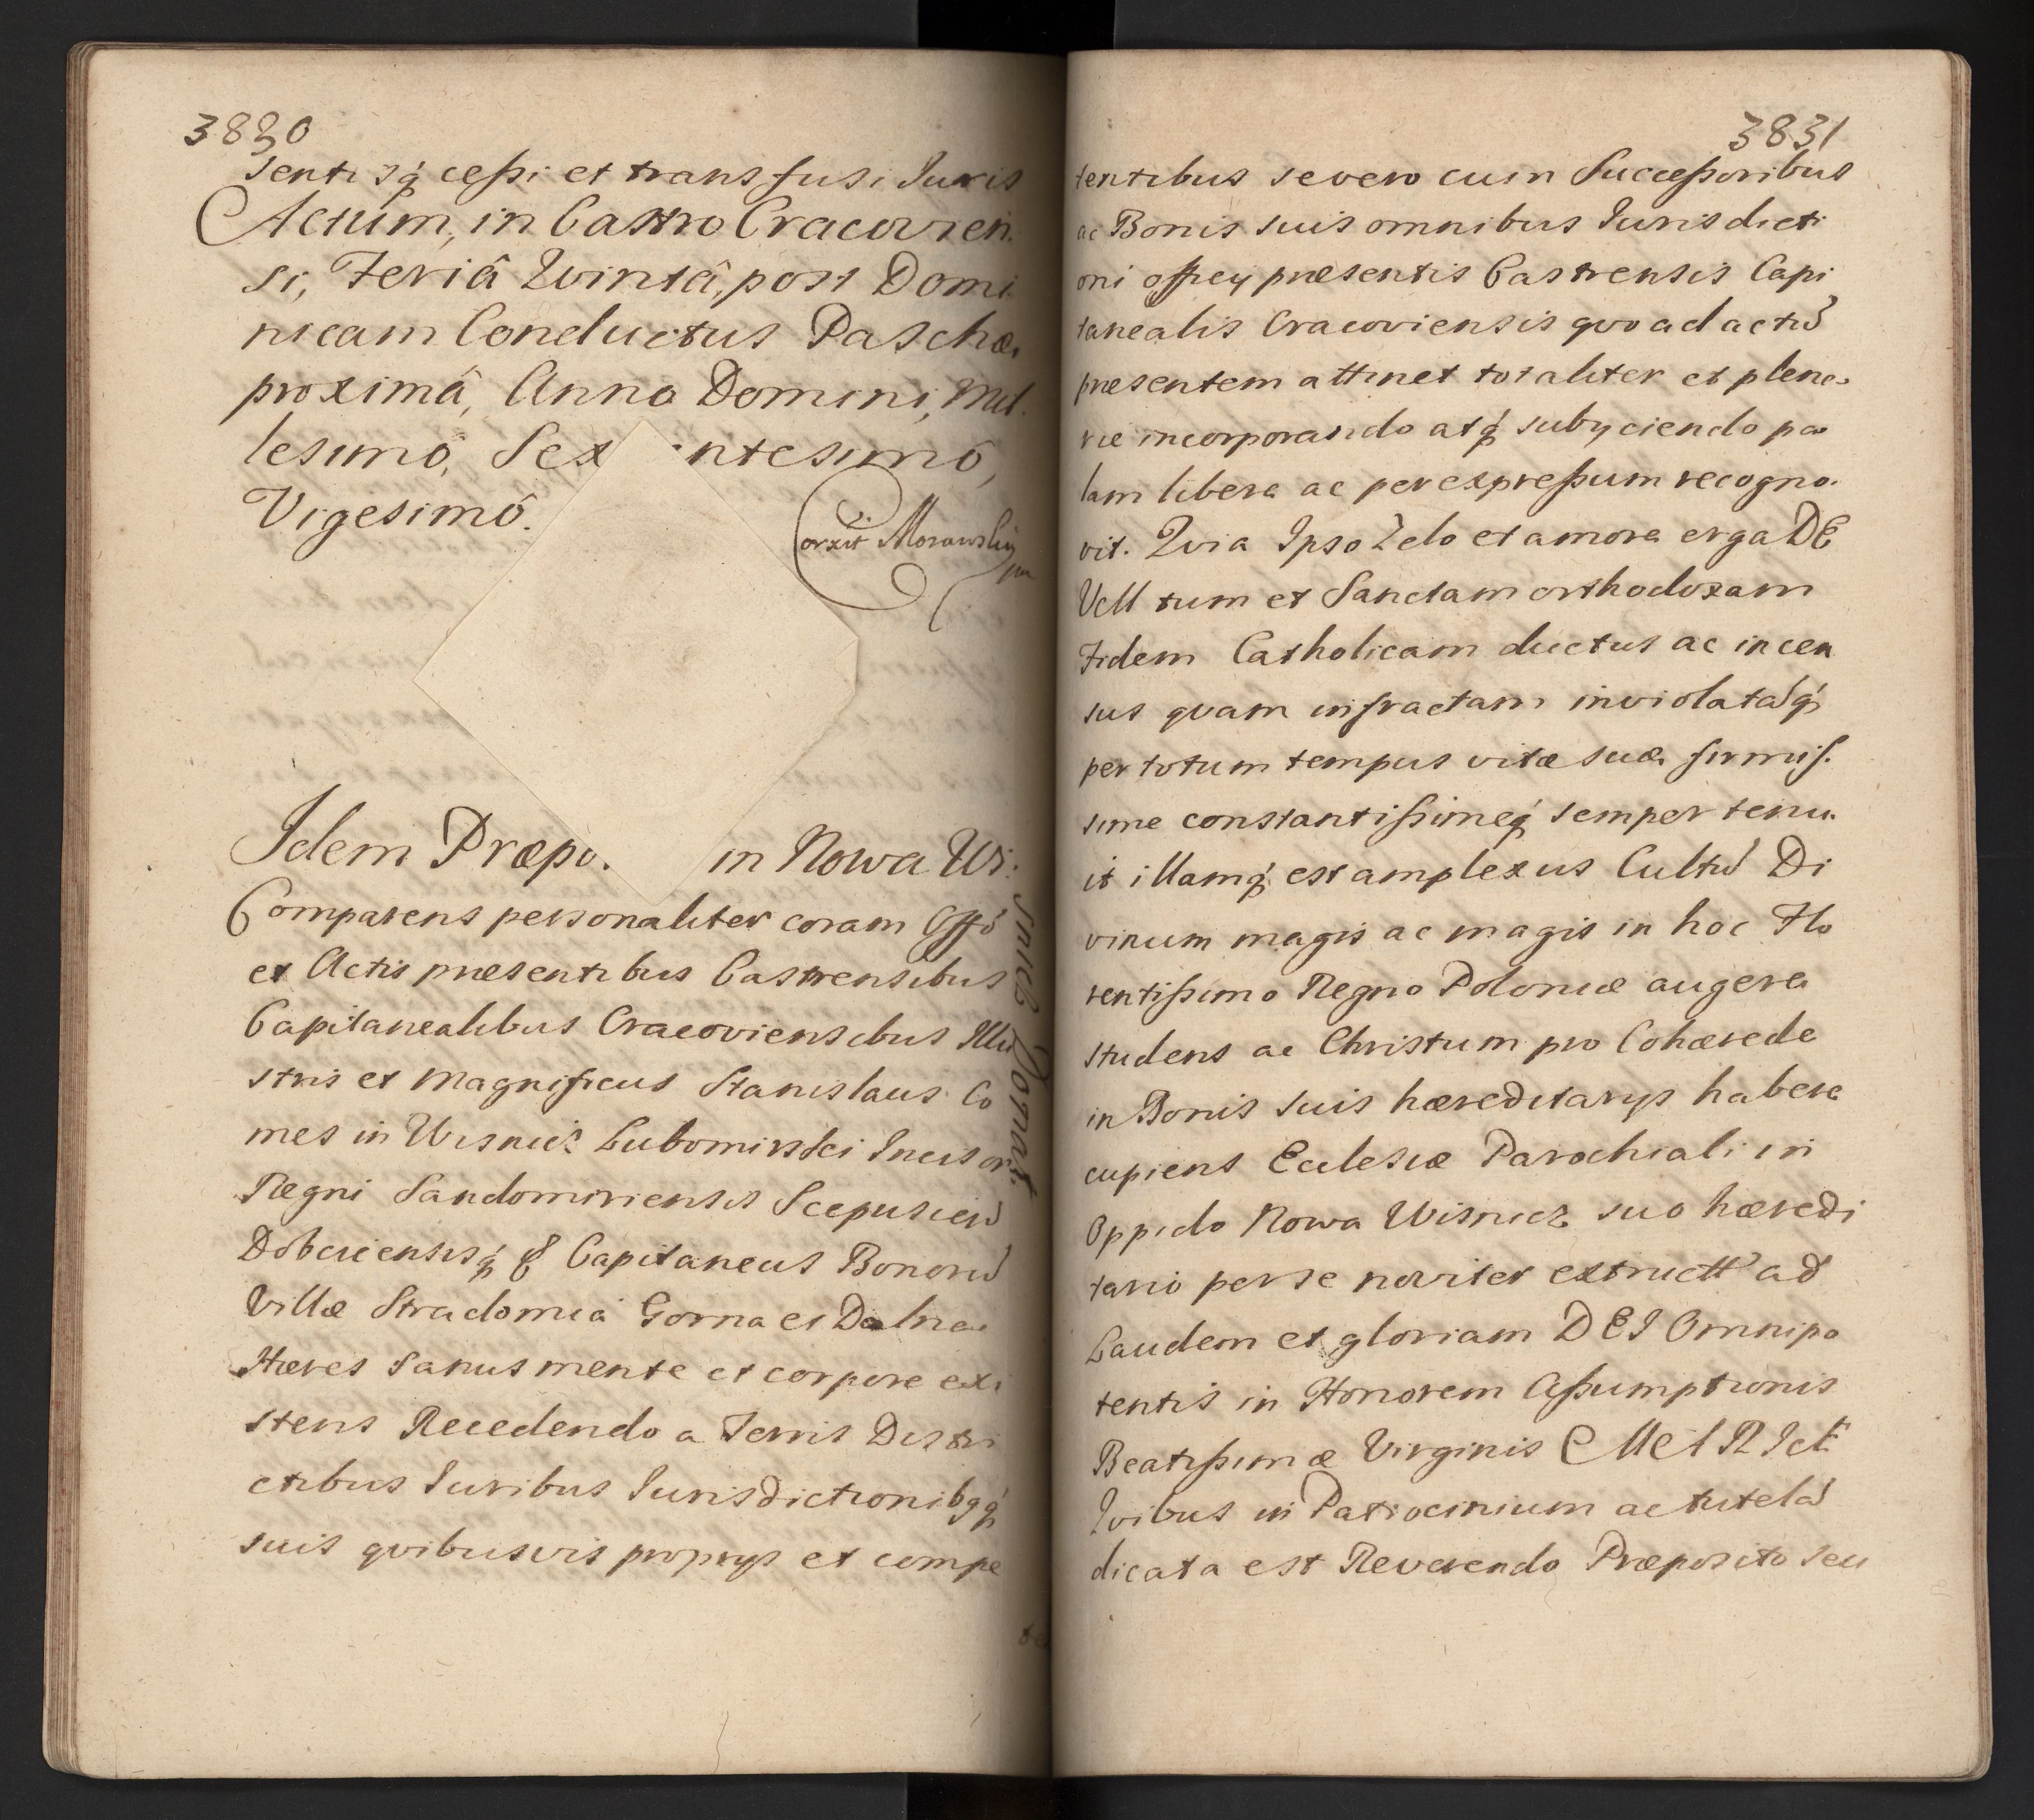 3830
sentisq́ cessi et transfusi Juris
Actum, in Castro Cracovien
si, Feriâ Quintâ, post Domi
nicam Conductus Paschæ
proximâ, Anno Domini, Mil
lesimô, Sex ntesimô,
Vigesimô.
Corxit Morawsky
Idem Præpo. in Nowa Wi:
snicz Donat
Comparens personaliter coram Offõ
et Actis præsentibus Castrensibus
Capitanealibus Cracoviensibus Illu
stris et Magnificus Stanislaus Co
mes in Wisnicz Lubomirski Incisor
Regni Sandomiriensis Scepusieñ
Dobciensisq́ & Capitaneus Bonorũ
Villæ Stradomia Gorna et Dolna
Hæres sanus mente et corpore exi
stens Recedendo a Terris Distri
ctibus Juribus Jurisdictionibqq́
suis qvibusvis proprys et compe
3831
tentibus se vero cum Successoribus
ac Bonis suis omnibus Jurisdicti
oni officy præsentis Castrensis Capi
tanealis Cracoviensis qvo ad actũ
præsentem attinet totaliter et plena
rie incorporando atq́ subyciendo pa
lam libere ac per expressum recogno
vit. Qvia Ipso Zelo et amore erga DE
Vll tum et Sanctam orthodoxam
Fidem Catholicam ductus ac incen
sus qvam infractam inviolatãq́
per totum tempus vitæ suæ firmis.
sime constantissimeq́ semper tenu.
it illamq́ est amplexus Cultũ Di
vinum magis ac magis in hoc Flo
rentissimo Regno Poloniæ augere
studens ac Christum pro Cohærede
in Bonis suis hæreditarys habere
cupiens Eclesiæ Parochiali in
Oppido Nowa Wisnicz suo hæredi
tario per se noviter extructt ad
Laudem et gloriam DEI Omnipo
tentis in Honorem Assumptionis
Beatissimæ Virginis
Qvibus in Patrocinium ac tutelã
dicata est Reverendo Præposito seu